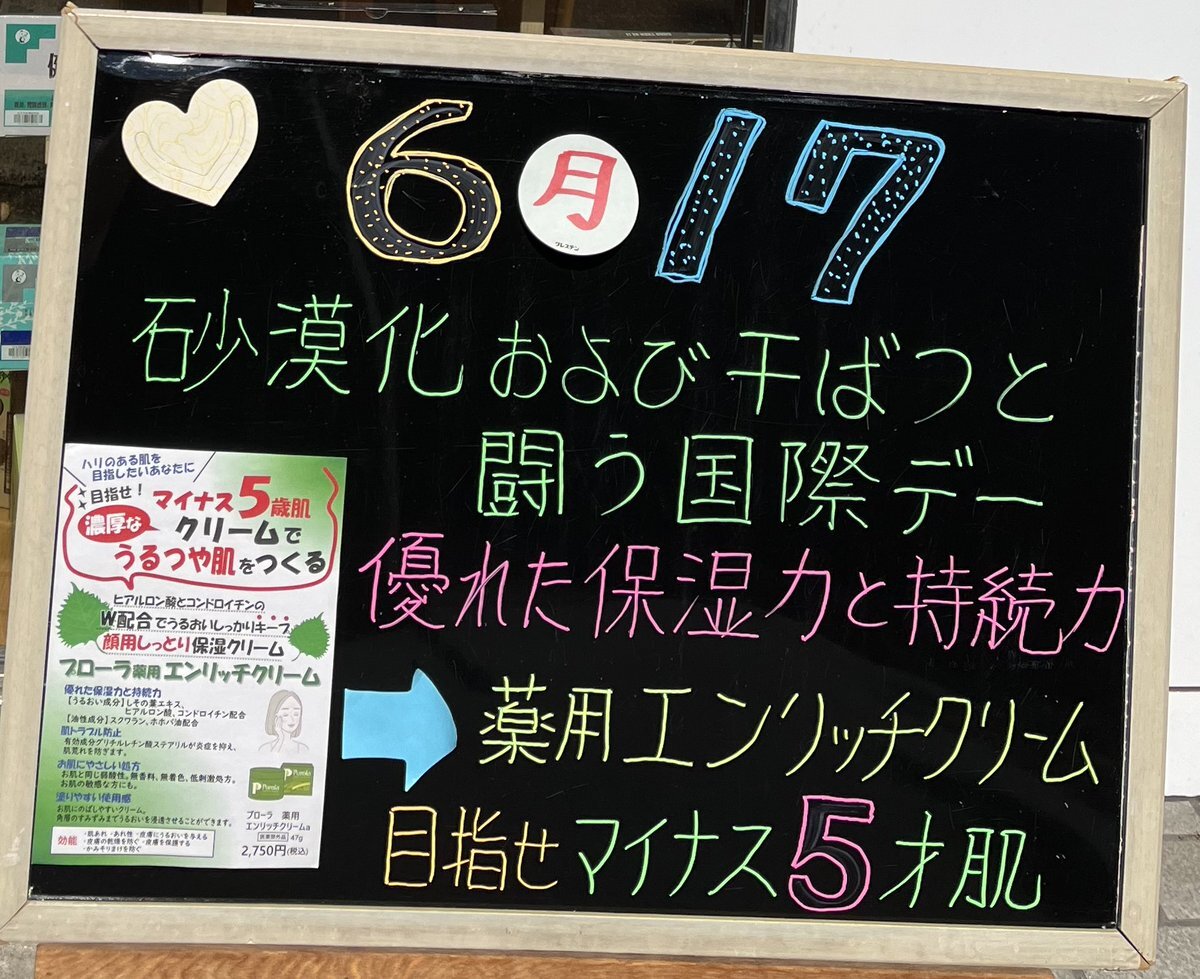 6月17
砂漠化および干ばつと
闘う国際デー
優れた保湿力と持続力
薬用エンリッチクリーム
目指せマイナス5才肌
ハリのある肌を
目指したいあなたに
目指せ！
マイナス5歳肌
濃厚な
クリームで
うるつや肌をつくる
ヒアルロン酸とコンドロイチンの
W配合でうるおいしっかりキープ
顔用しっとり保湿クリーム
プローラ薬用エンリッチクリーム
優れた保湿力と持続力
【うるおい成分】しその葉エキス、
ヒアルロン酸、コンドロイチン配合
【油性成分】スクワラン、ホホバ油配合
肌トラブル防止
有効成分グリチルレチン酸ステアリルが炎症を抑え、
肌荒れを防ぎます。
お肌にやさしい処方
お肌と同じ弱酸性。無香料、無着色、低刺激処方。
お肌の敏感な方にも。
塗りやすい使用感
お肌にのばしやすいクリーム。
角層のすみずみまでうるおいを浸透させることができます。
効能
・肌あれ・あれ性・皮膚にうるおいを与える
・皮膚の乾燥を防ぐ・皮膚を保護する
・かみそりまけを防ぐ
Purola
Purola
プローラ 薬用
エンリッチクリームa
医薬部外品 47g
2,750円(税込)